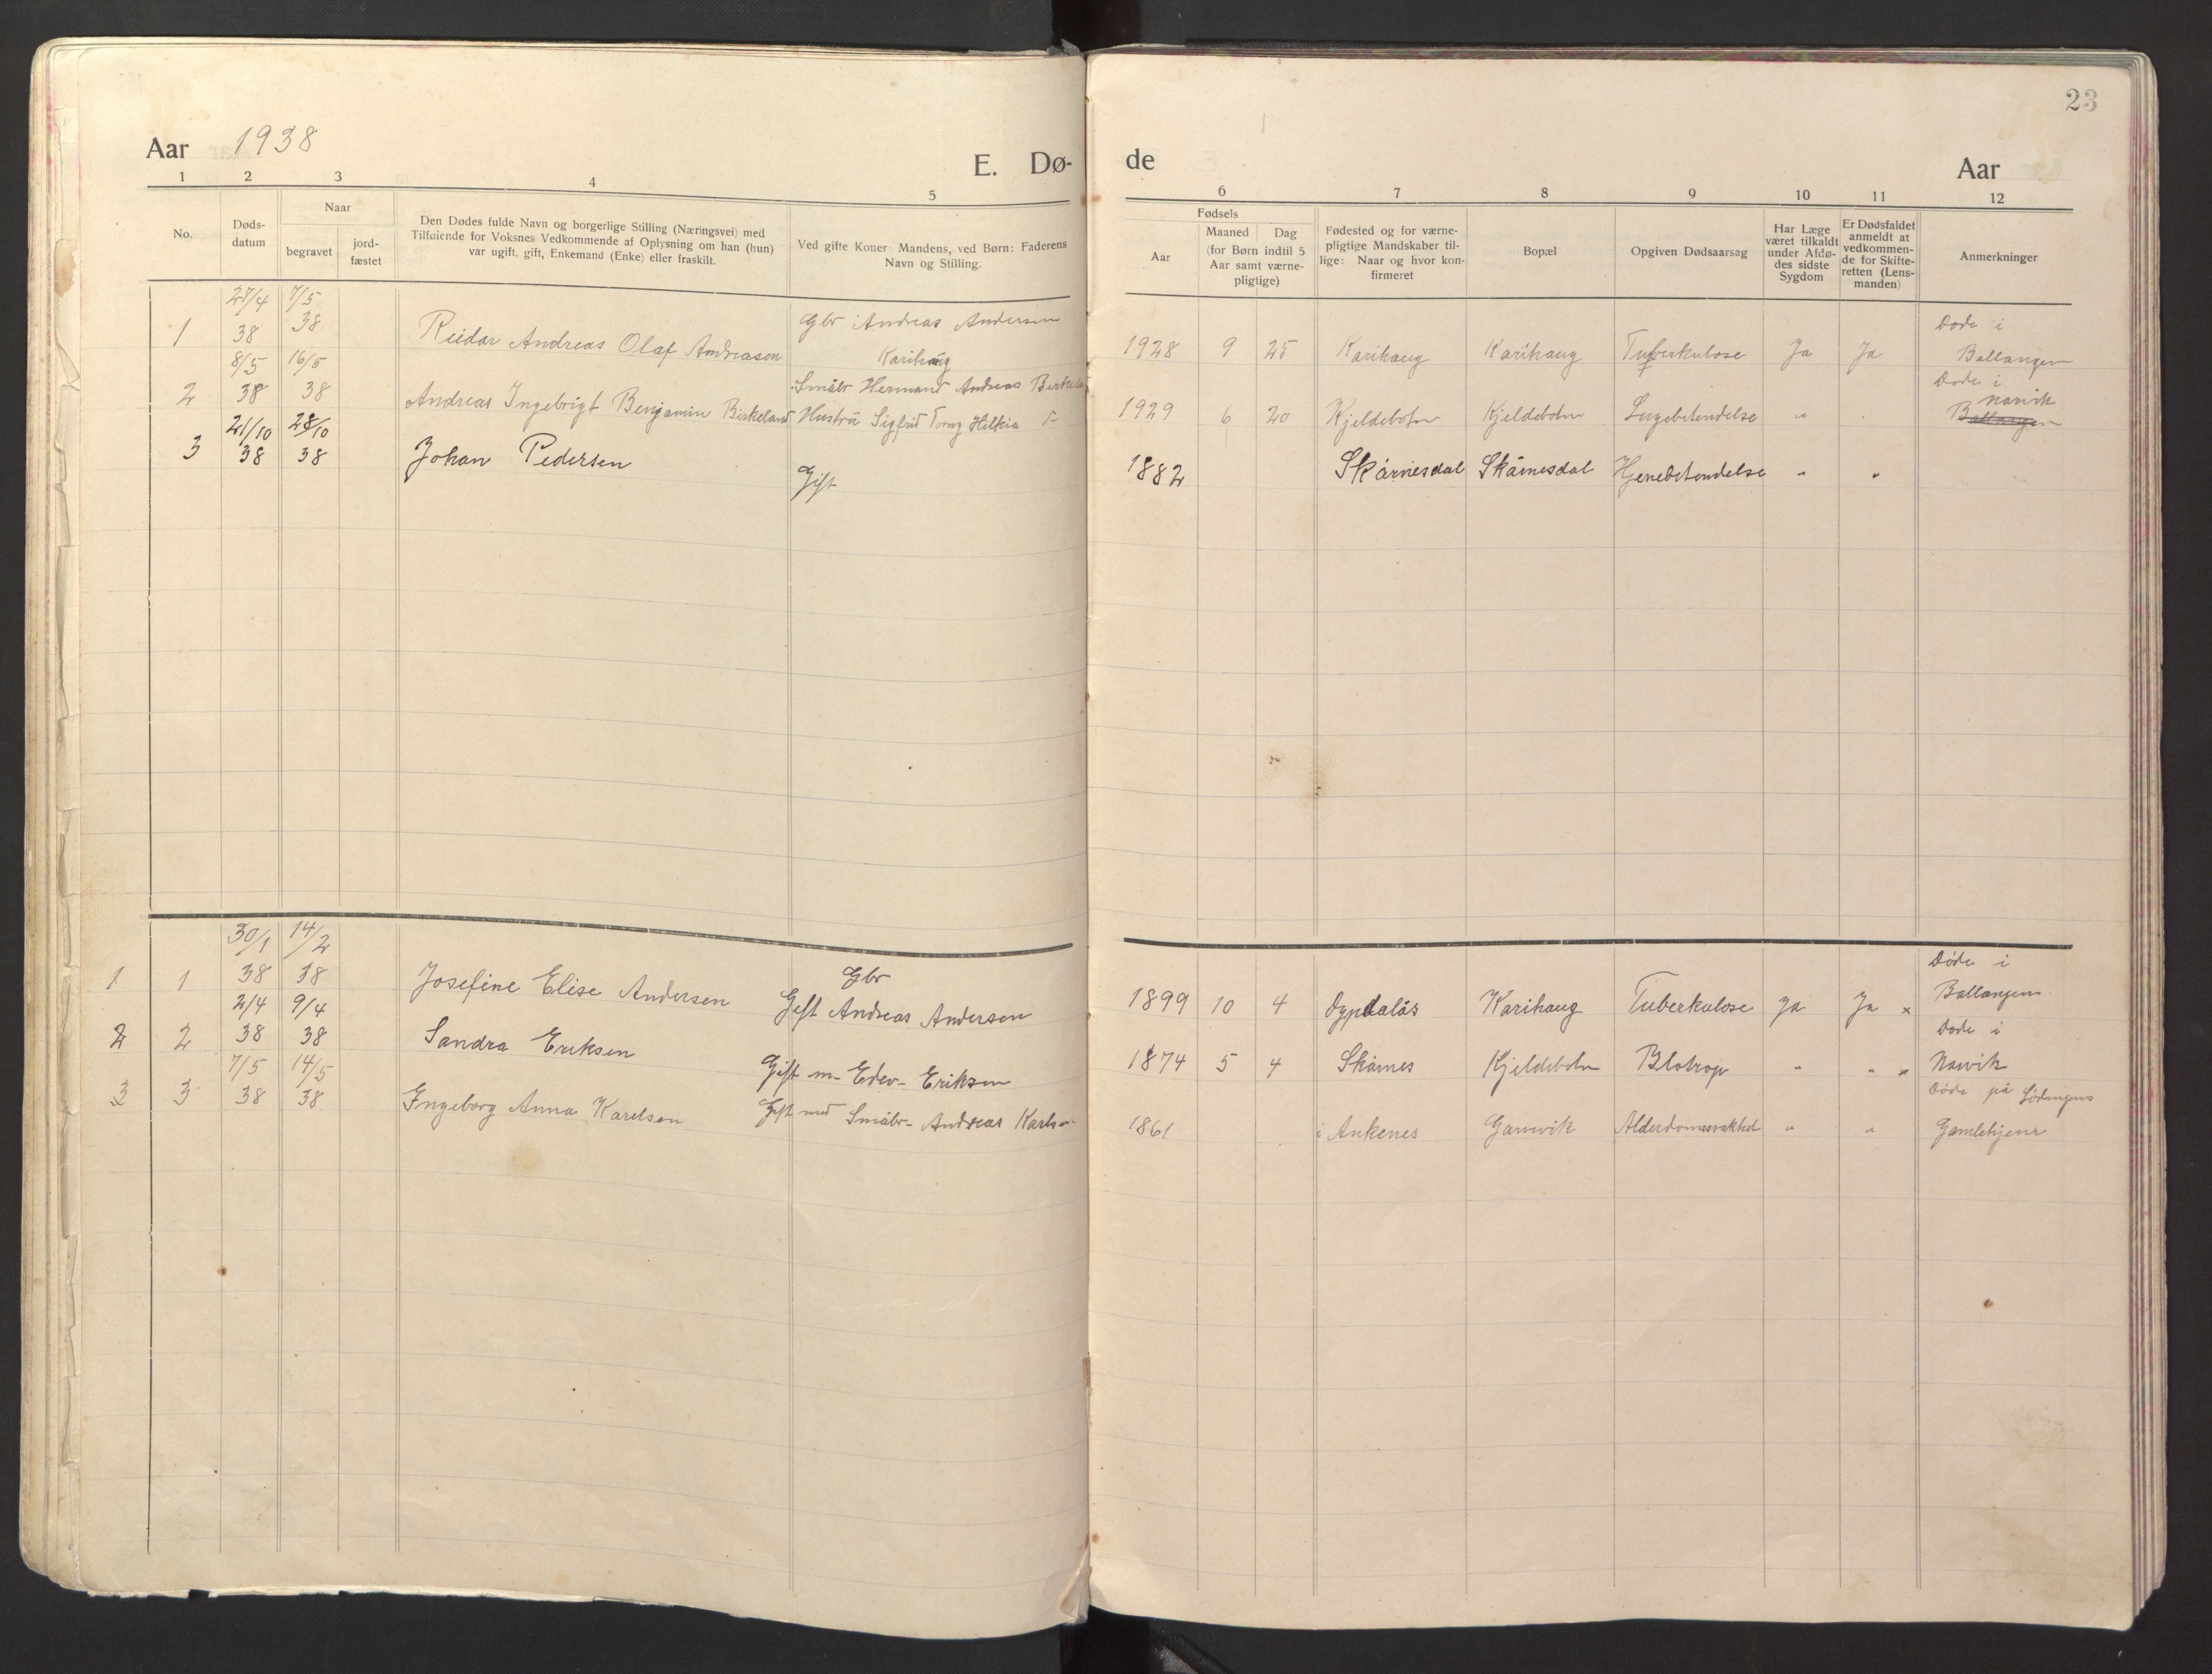 23
Aar 1938
E. Dø-
de
Aar
1 2 3 4 5 6 7 8 9 10 11 12
No.
Døds-
datum
Naar
begravet
jord-
fæstet
Den Dødes fulde Navn og borgerlige Stilling (Næringsvei) med
Tilføiende for Voksnes Vedkommende af Oplysning om han (hun)
var ugift, gift, Enkemand (Enke) eller fraskilt.
Ved gifte Koner: Mandens, ved Børn: Faderens
Navn og Stilling.
Fødsels
Aar
Maaned Dag
(for Børn indtil 5
Aar samt værne-
pligtige)
Fødested og for værne-
pligtige Mandskaber til-
lige: Naar og hvor kon-
firmeret
Bopæl
Opgiven Dødsaarsag
Har Læge
været tilkaldt
under Afdø-
des sidste
Sygdom
Er Dødsfaldet
anmeldt at
vedkommen-
de for Skifte-
retten (Lens-
manden)
Anmerkninger
27/4 7/5
1 38 38 Reidar Andreas Olaf Andreasen
Gbr Andreas Andersen
Karihaug
1928 9 25 Karihaug Karihaug Tuberkulose Ja Ja
Døde i
Ballangen
8/5 16/5
2 38 38 Andreas Ingebrigt Benjamin Birkeland
Småbr Hermand Andreas Birkeland
Hustru Sigfrid Torny Hilkia F-
1929 6 20 Kjeldebotn Kjeldebotn Lugebetendelse "
Døde i
Narvik
Ballangen
21/10 28/10
3 38 38 Johan Pedersen
Gift
1882 Skårnesdal Skårnesdal Hjenebetendelse " "
30/1 14/2
1 1 38 38 Josefine Elise Andersen
Gbr
Gift Andreas Andersen
1899 10 4 Dypdalås Karihaug Tuberkulose Ja Ja x
Døde i
Ballangen
2/4 9/4
2 2 38 38 Sandra Eriksen
Gift m- Edev- Eriksen
1874 5 4 Skarnes Kjeldebotn Blotrop " " x
Døde i
Narvik
7/5 14/5
3 3 38 38 Ingeborg Anna Karelsen
Gift med Småbr- Andreas Karlsen
1861 i Ankenes Garnvik Alderdomssvakhet " "
Døde på Lødingens
Gamlehjem